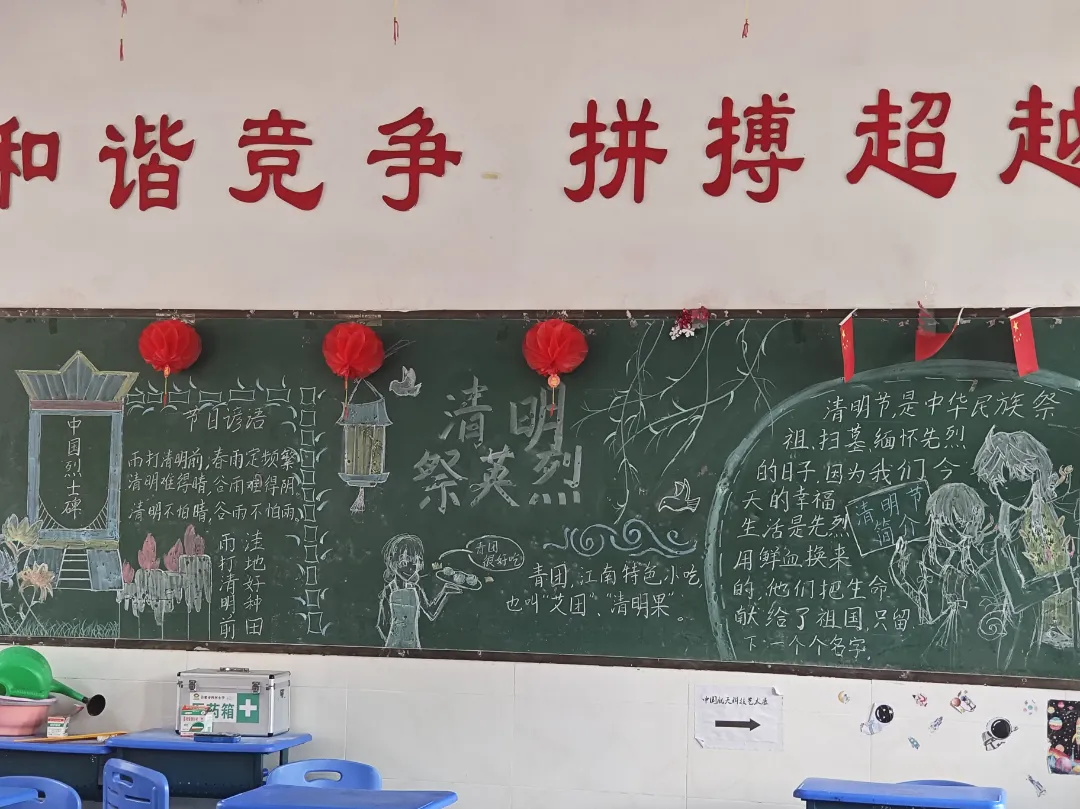 和谐竞争 拼搏超越
中国烈士碑
节日谚语
雨打清明前,春雨定频繁
清明难得晴,谷雨难得阴。
清明不怕晴,谷雨不怕雨。
雨打清明前
洼地好种田
清明
祭英烈
青团
很好吃
青团,江南特色小吃
也叫“艾团”、“清明果”。
清明节是中华民族祭
祖、扫墓、缅怀先烈
的日子,因为我们今
天的幸福
生活是先烈
用鲜血换来
的,他们把生命
献给了祖国,只留
下一个个名字。
清明节
简介
药箱
中国航天科技艺术展